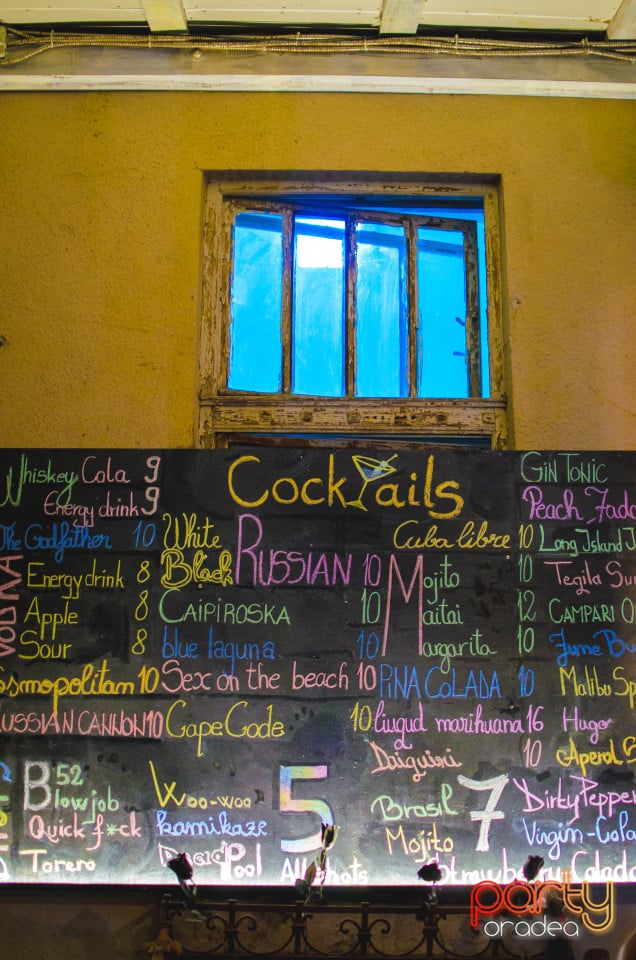 Whiskey Cola 9
Energy drink 9
The Godfather 10
VODKA
Energy drink 8
Apple 8
Sour 8
osmopolitan 10
RUSSIAN CANNON 10
Cocktails
White
Black
RUSSIAN 10
CAIPIROSKA 10
blue laguna 10
Sex on the beach 10
Cape Code 10
Cuba libre 10
Mojito 10
Maitai 12
Margarita 10
PiNA COLADA 10
liuqud marihuana 16
Daiquini 10
GIN TONIC
Peach
Long Island
Teqila
CAMPARI
Malibu
Hugo
Aperol
B52
Blowjob
Quick f*ck
Torero
Woo-woo
kamikaze
DeadPool
5
All shots
Brasil
Mojito
7
Dirty Pepper
Virgin-Cola
Strawberry Colada
party
oradea